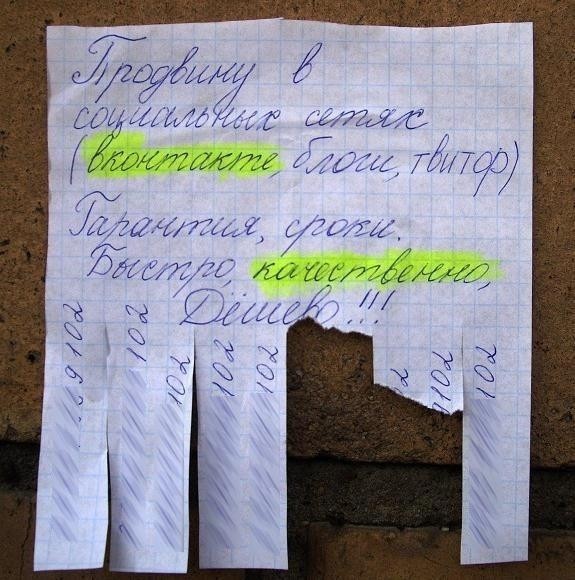 Продвину в
социальных сетях
(вконтакте, блоги, твитор)
Гарантия, сроки.
Быстро, качественно,
Дёшево!!!
9102
102
102
102
102
02
9102
102